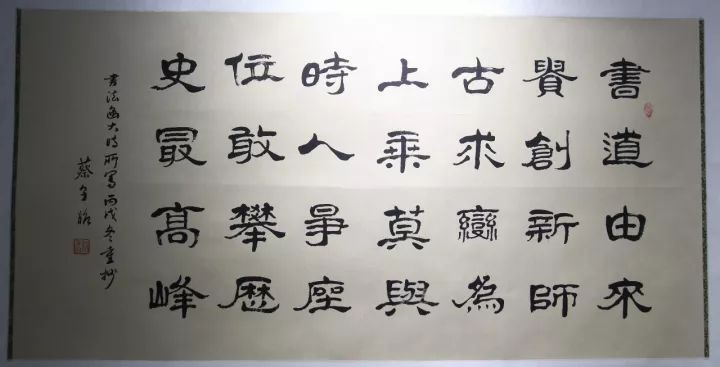 書道由來
貴創新師
古求變為
上乘莫與
時人爭座
位敢攀歷
史最高峰
書法函大時所寫丙戌冬重抄
蔡